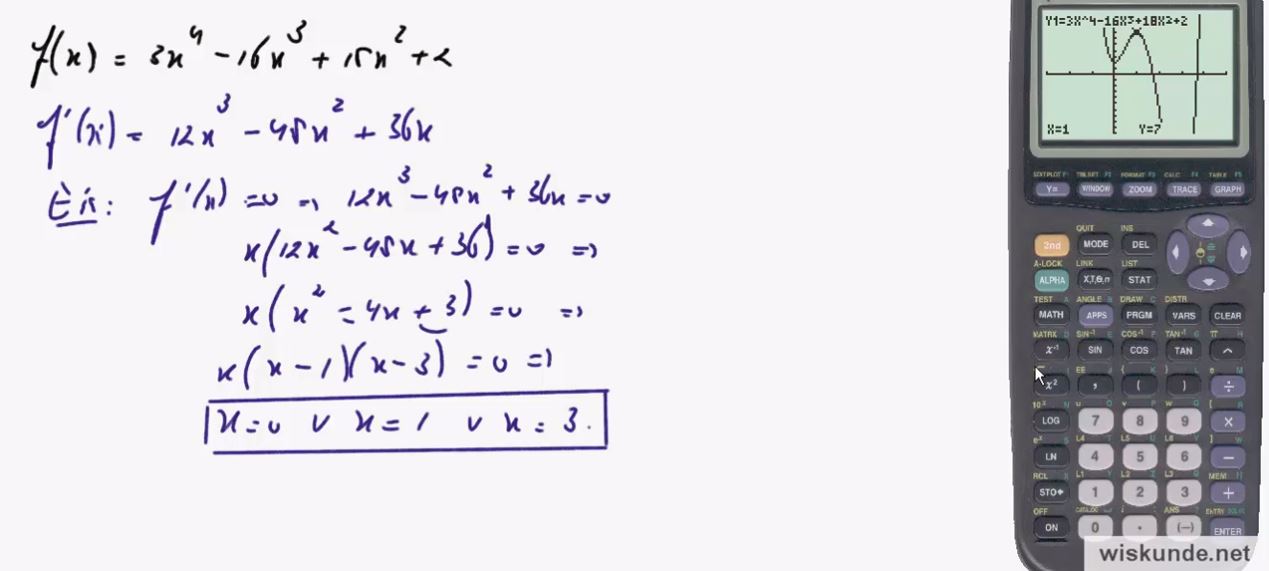 f(x) = 3x⁴ - 16x³ + 18x² + 2
f'(x) = 12x³ - 48x² + 36x
Eis: f'(x) = 0 ⇒ 12x³ - 48x² + 36x = 0
x(12x² - 48x + 36) = 0 ⇒
x(x² - 4x + 3) = 0 ⇒
x(x - 1)(x - 3) = 0 ⇒
x = 0 ∨ x = 1 ∨ x = 3.
Y1=3X^4-16X³+18X²+2
X=1 Y=7
STATPLOT F1 TBLSET F2 FORMAT F3 CALC F4 TABLE F5
Y= WINDOW ZOOM TRACE GRAPH
QUIT INS
2nd MODE DEL
A-LOCK LINK LIST
ALPHA X,T,θ,n STAT
TEST A ANGLE B DRAW C DISTR
MATH APPS PRGM VARS CLEAR
MATRX D SIN⁻¹ E COS⁻¹ F TAN⁻¹ G π H
x⁻¹ SIN COS TAN ^
√ I EE J { K } L e M
x² , ( ) ÷
10ˣ N u O v P w Q [ R
LOG 7 8 9 ×
eˣ S L4 T L5 U L6 V ] W
LN 4 5 6 −
RCL X L1 Y L2 Z L3 θ MEM "
STO→ 1 2 3 +
OFF CATALOG ANS ? ENTRY SOLVE
ON 0 . (−) ENTER
wiskunde.net